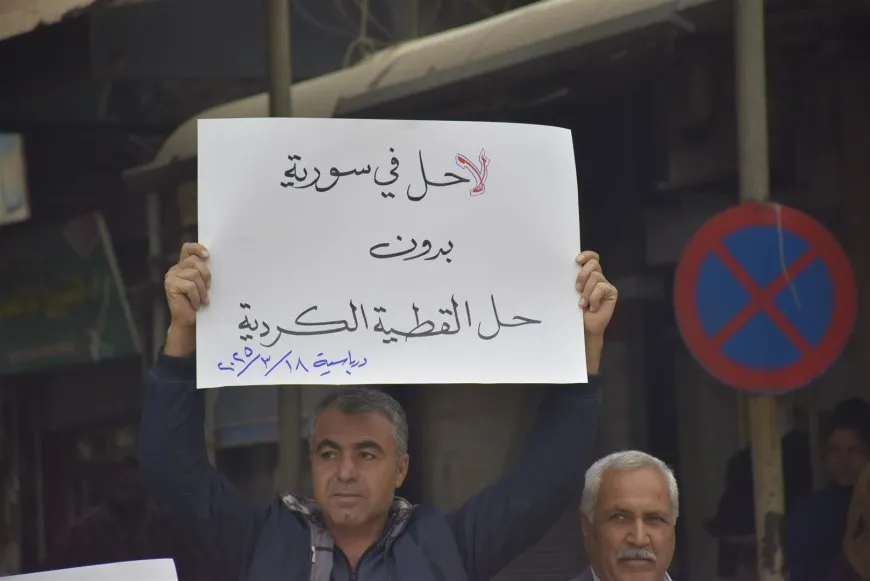 لا حل في سورية
بدون
حل القطية الكردية
درباسية ١٨/٣/٢٠٢٥